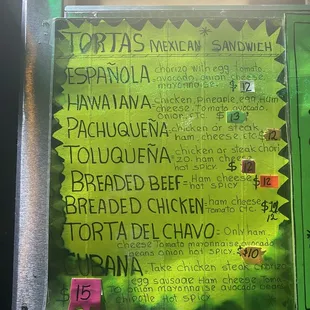 TORTAS MEXICAN * SANDWICH
ESPAÑOLA chorizo with egg Tomato
avocado, onion cheese
mayonnaise $12
HAWAIANA chicken, Pineapple, egg Ham
cheese, Tomato avocado
onion, ETC. $13
PACHUQUEÑA chicken or steak
ham cheese ETC $12
TOLUQUEÑA chicken or steak chori
zo. ham cheese
hot spicy. $12
BREADED BEEF= Ham cheese
hot spicy $12
BREADED CHICKEN= ham cheese
Tomato ETC. $
12
TORTA DEL CHAVO = Only ham
cheese Tomato mayonnaise avocado
beans onion hot spicy. $10
CUBANA. Take chicken steak chorizo
egg sausage Ham cheese Toma
$15 To onion mayonnaise avocado beans
chipotle. Hot spicy